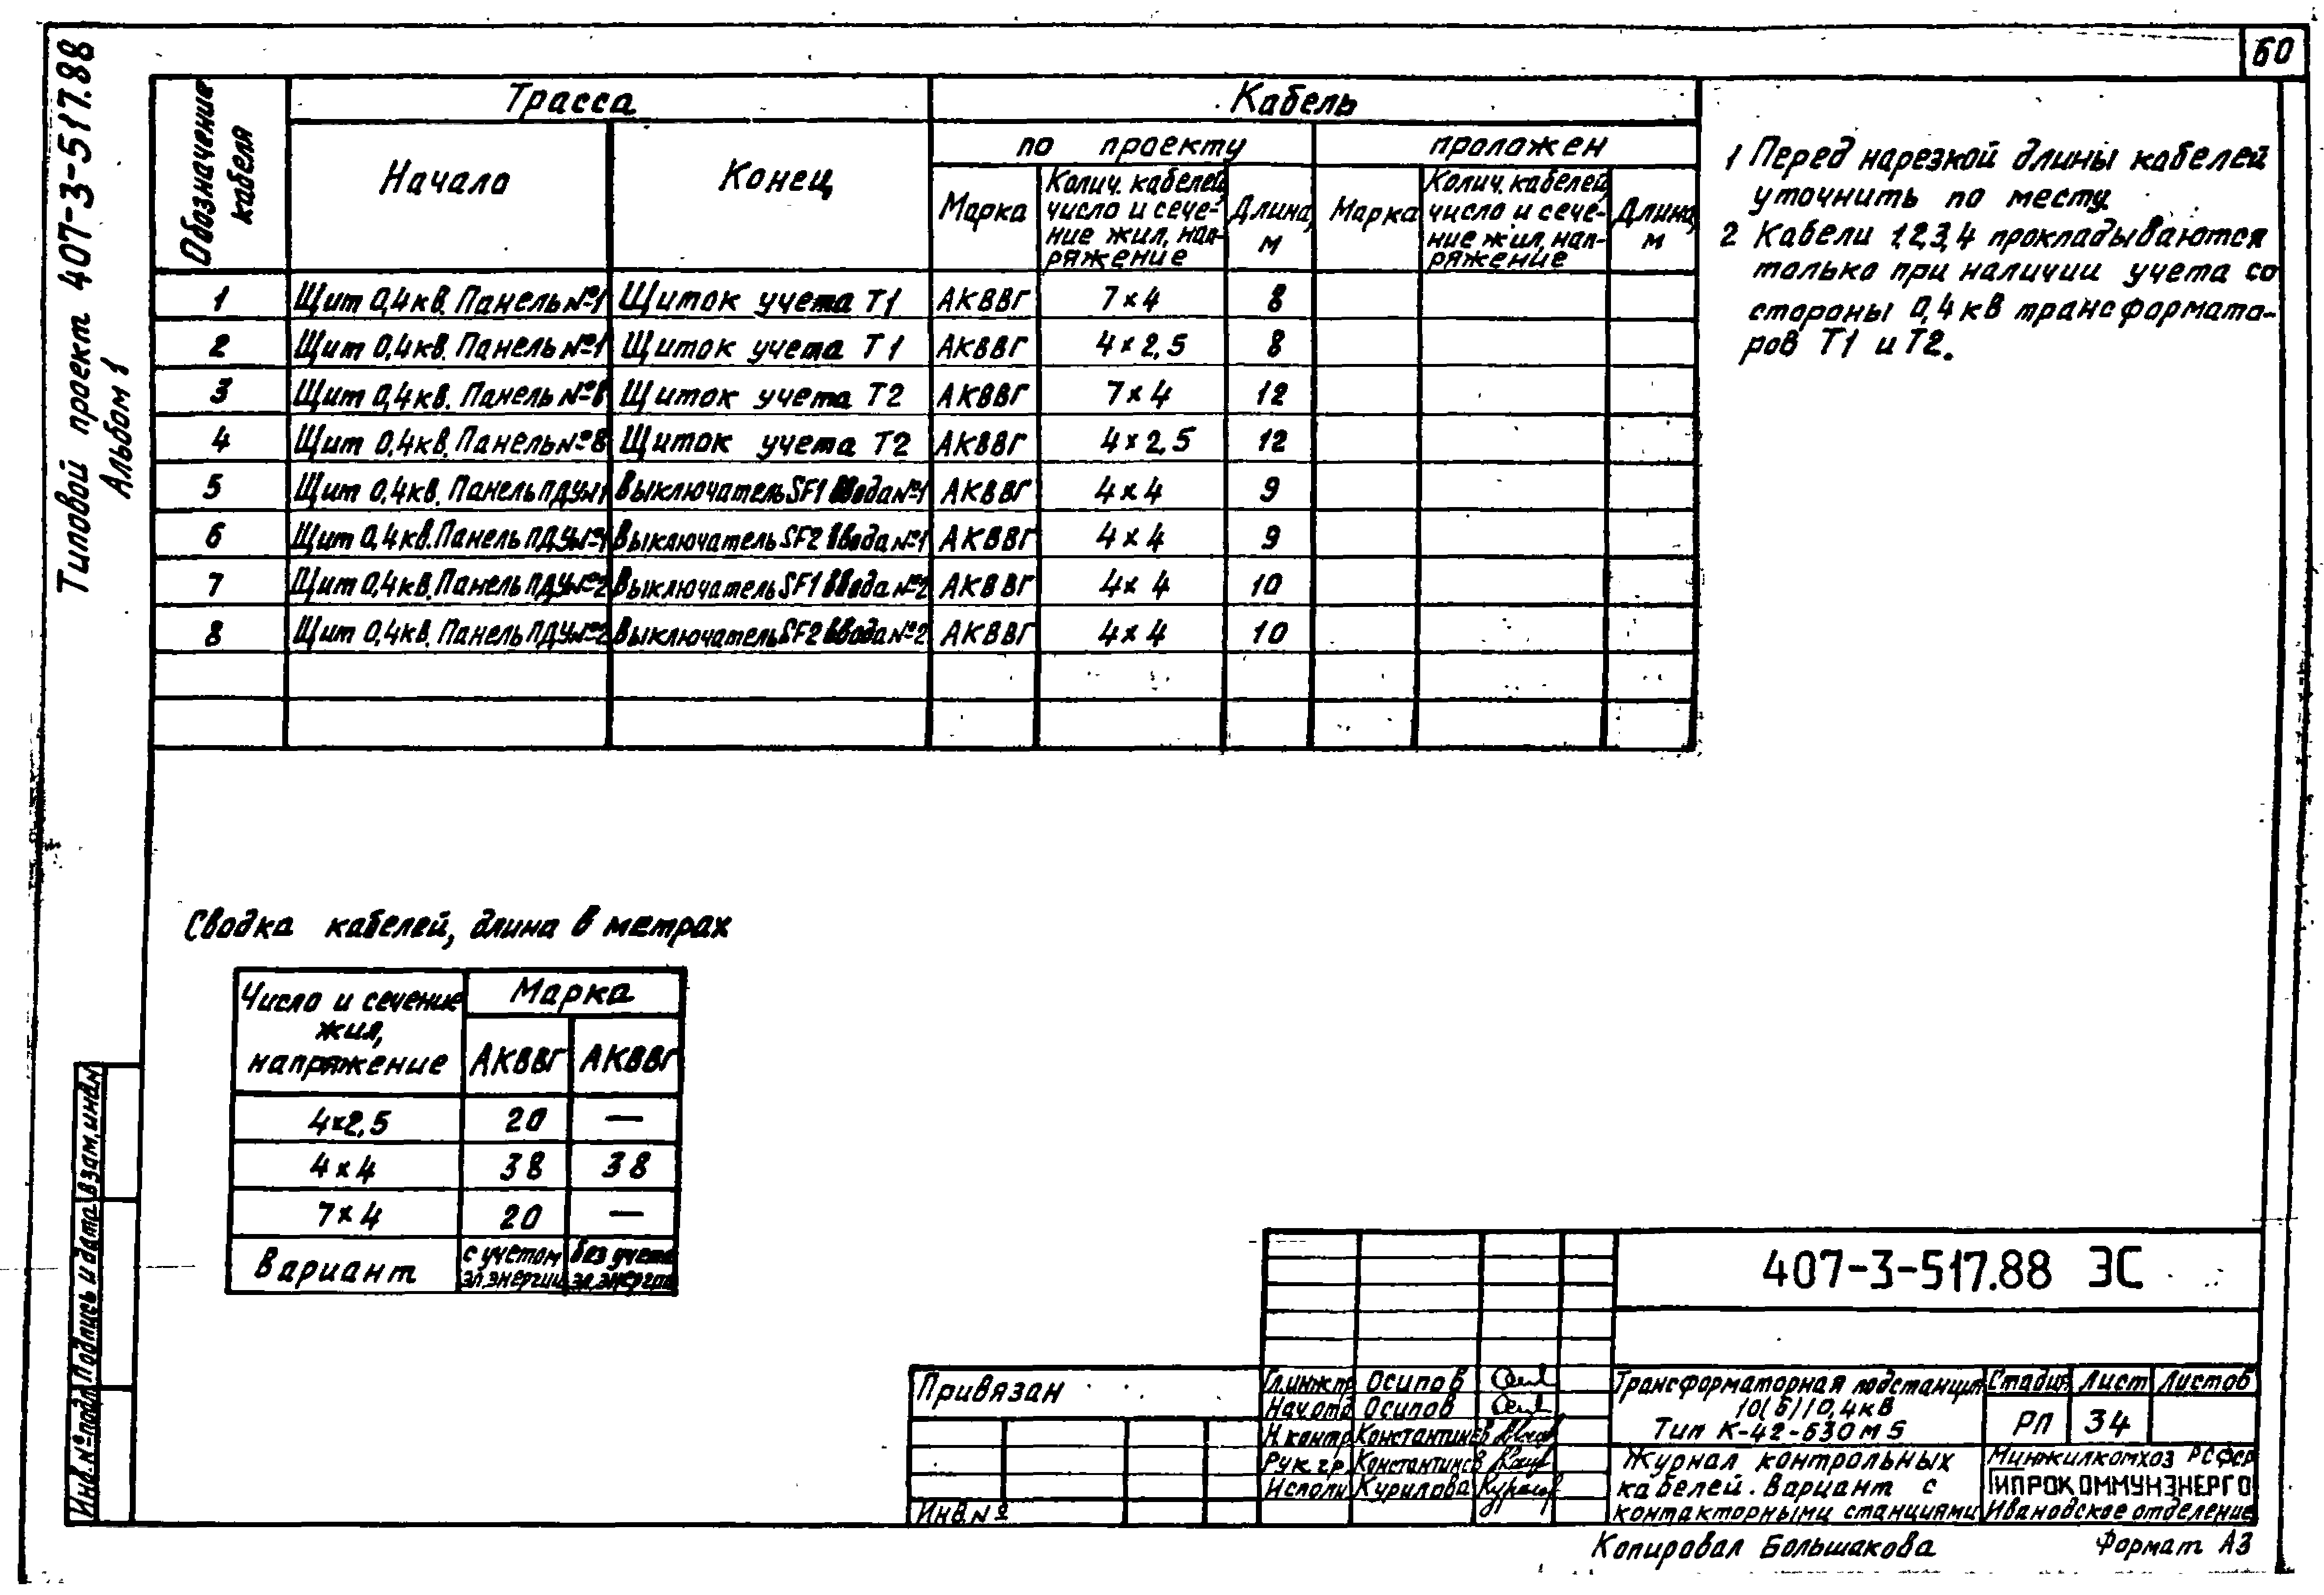 60
Типовой проект 407-3-517.88
Альбом 1
Обозначение кабеля
Трасса
Кабель
Начало
Конец
по проекту
проложен
Марка
Колич. кабелей, число и сече-
ние жил, нап-
ряжение
Длина, м
Марка
Колич. кабелей, число и сече-
ние жил, нап-
ряжение
Длина, м
1 Щит 0,4кв. Панель №1 Щиток учета Т1 АКВВГ 7×4 8
2 Щит 0,4кв. Панель №1 Щиток учета Т1 АКВВГ 4×2,5 8
3 Щит 0,4кв. Панель №8 Щиток учета Т2 АКВВГ 7×4 12
4 Щит 0,4кв. Панель №8 Щиток учета Т2 АКВВГ 4×2,5 12
5 Щит 0,4кв. Панель ПДУ№1 Выключатель SF1 Ввода №1 АКВВГ 4×4 9
6 Щит 0,4кв. Панель ПДУ№1 Выключатель SF2 Ввода №1 АКВВГ 4×4 9
7 Щит 0,4кв. Панель ПДУ№2 Выключатель SF1 Ввода №2 АКВВГ 4×4 10
8 Щит 0,4кв. Панель ПДУ№2 Выключатель SF2 Ввода №2 АКВВГ 4×4 10
1 Перед нарезкой длины кабелей
уточнить по месту.
2 Кабели 1,2,3,4 прокладываются
только при наличии учета со
стороны 0,4кв трансформато-
ров Т1 и Т2.
Сводка кабелей, длина в метрах
Число и сечение
жил,
напряжение
Марка
АКВВГ АКВВГ
4×2,5 20 —
4×4 38 38
7×4 20 —
Вариант
с учетом
эл.энергии
без учета
эл.энергии
Взам. инв.№
Подпись и дата
Инв.№ подл
Привязан
Инв.№
407-3-517.88 ЭС
Гл.инж.пр Осипов
Нач.отд Осипов
Н.контр Константинов
Рук.гр. Константинов
Исполн Курилова
Трансформаторная подстанция
10(6)/0,4кв
Тип К-42-630м5
Стадия Лист Листов
РП 34
Журнал контрольных
кабелей. Вариант с
контакторными станциями
Минжилкомхоз РСФСР
ГИПРОКОММУНЭНЕРГО
Ивановское отделение
Копировал Большакова
Формат А3